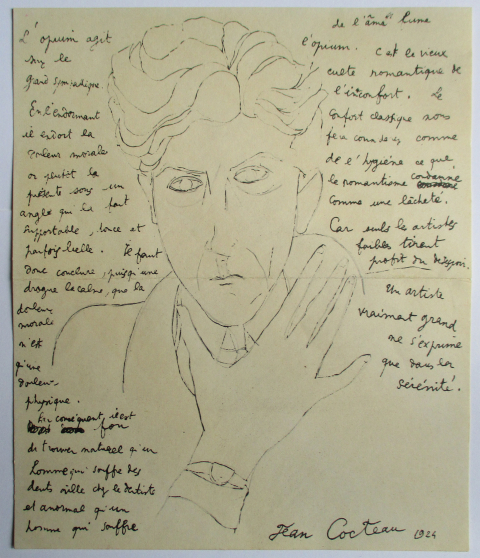 L'opium agit
sur le
grand sympathique.
En l'endormant
il endort la
douleur morale
ou plutôt la
présente sous un
angle qui la fait
supportable, douce et
parfois belle. Il faut
donc conclure, puisqu'une
drogue la calme, que la
douleur
morale
n'est
qu'une
douleur
physique.
Par conséquent, il est
fou
de trouver naturel qu'un
homme qui souffre des
dents aille chez le dentiste
et anormal qu'un
homme qui souffre
de l'âme hume
l'opium. C'est le vieux
culte romantique de
l'inconfort. Le
confort classique nous
comme
de l'hygiène ce que
le romantisme condamne
comme une lâcheté.
Car seuls les artistes
faibles tirent
profit du
Un artiste
vraiment grand
ne s'exprime
que dans la
sérénité.
Jean Cocteau 1924